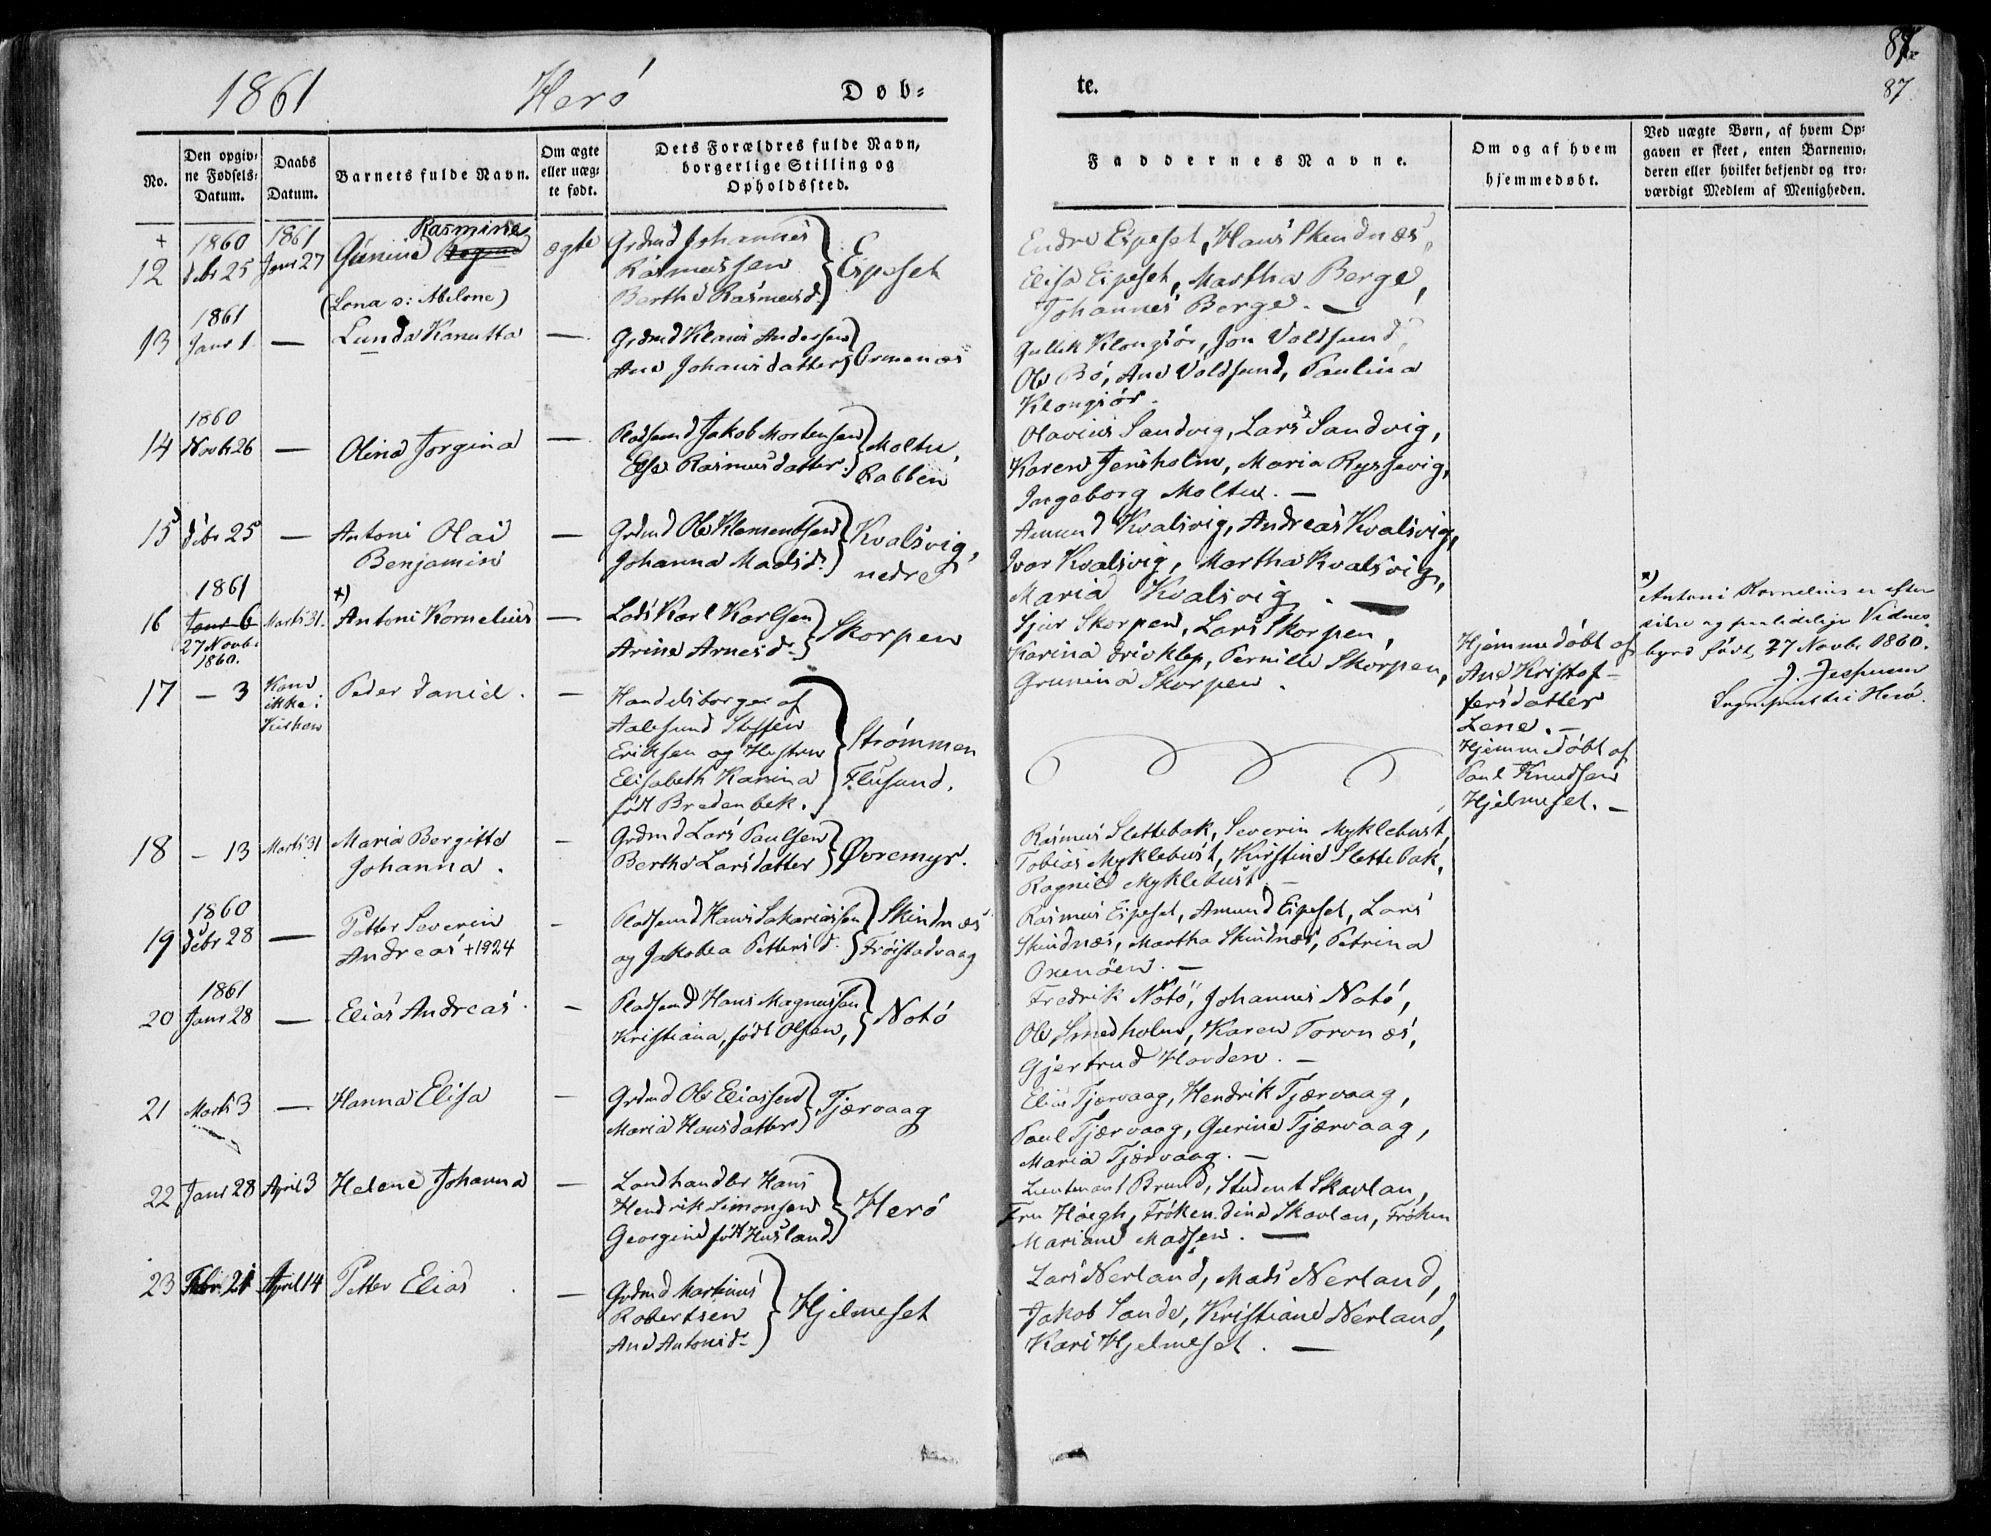 1861 Herö Døb=
te.
87
87
No.
Den opgiv=
ne Fødsels=
Datum.
Daabs
Datum.
Barnets fulde Navn.
Om ægte
eller uæg=
te født.
Dets Forældres fulde Navn,
borgerlige Stilling og
Opholdssted.
Faddernes Navne.
Om og af hvem
hjemmedøbt.
Ved uægte Børn, af hvem Op=
gaven er skeet, enten Barnemo=
deren eller hvilket bekjendt og tro=
værdigt Medlem af Menigheden.
+
12
1860
Debr 25
1861
Janr 27
Rasmine
Gunine
ægte
Grdmd Johannes
Rasmussen
Berthe Rasmusd.
Eipeset
Endre Eipeset, Hans Skendnæs,
Elisa Eipeset, Martha Berge,
Johannes Berge. —
13
1861
Janr 1
—
(Lona o: Abilone)
Lunda Kanutta
—
Grdmd Klaus Andersen
Ane Johansdatter
Ormenæs
Gullik Klongsör, Jon Voldsund,
Ole Bö, Ane Voldsund, Paulina
Klongsör.
14
1860
Novbr 26
—
Olina Jorgina
—
Pladsmd Jakob Mortensen
Else Rasmusdatter.
Moltu,
Rabben
Olavius Sandvig, Lars Sandvig,
Karen Jensholm, Maria Ryssevig,
Ingeborg Moltu. —
15
Debr 25
—
Antoni Olai
Benjamin
—
Grdmd Ole Klementsen
Johanna Madsd.
Kvalsvig,
nedre
Amund Kvalsvig, Andreas Kvalsvig,
Ivar Kvalsvig, Martha Kvalsvig,
Maria Kvalsvig. —
16
1861
Janr 6
27 Novbr
1860.
Marts 31.
x)
Antoni Kornelius
—
Lods Karl Karlsen
Arine Arnesd.
Skorpen
Sjur Skorpen, Lars Skorpen,
Karina Frivklep, Pernille Skorpen,
Grunina Skorpen.
Hjemmedöbt af
Ane Kristof-
fersdatter
Lene. —
x)
Antoni Kornelius er efter
sikre og paalidelige Vidnes-
byrd född 27 Novbr 1860.
J. Jespersen
Sognepræst til Herö
17
— 3
Kom
ikke i
Kirken
Peder Daniel.
—
Handelsborger af
Aalesund Steffen
Eriksen og Hustru
Elisabeth Karina
födt Bredenbek.
Strömmen
Flusund.
Hjemmedöbt af
Paul Knudsen
Hjelmeset. —
18
— 13
Marts 31
Maria Bergitte
Johanna.
—
Grdmd Lars Paulsen
Berthe Larsdatter
Øvremyr.
Rasmus Slettebak, Severin Myklebust,
Tobias Myklebust, Kirstine Slettebak,
Ragnild Myklebust. —
19
1860
Debr 28
—
Petter Severin
Andreas +1924
-
Pladsmd Hans Sakariassen
og Jakobea Pettersd.
Skindnæs
Fröistadvaag
Rasmus Eipeset, Amund Eipeset, Lars
Skindnæs, Martha Skindnæs, Petrina
Oxenöen. —
20
1861
Janr 28
—
Elias Andreas.
-
Pladsmd Hans Magnussen
Kristiana, födt Olsen,
Notö
Fredrik Notö, Johannes Notö,
Ole Smedholm, Karen Torvnæs,
Gjertrud Havden. —
21
Marts 3
—
Hanna Elisa
—
Grdmd Ole Eliassen
Maria Hansdatter
Tjærvaag
Elias Tjærvaag, Hendrik Tjærvaag,
Paul Tjærvaag, Gurine Tjærvaag,
Maria Tjærvaag. —
22
Janr 28
April 3
Helene Johanna
—
Landhandler Hans
Hendrik Simonsen
Georgine födt Husland
Herö
Lieutenant Brund, Student Skavlan,
Fru Höegh, Fröken Dina Skavlan, Fröken
Mariane Madsen. —
23
Febr 21
April 14
Petter Elias
—
Grdmd Martinus
Robertsen
Ane Antonisd.
Hjelmeset
Lars Nerland, Mads Nerland,
Jakob Sande, Kristiane Nerland,
Kari Hjelmeset. —